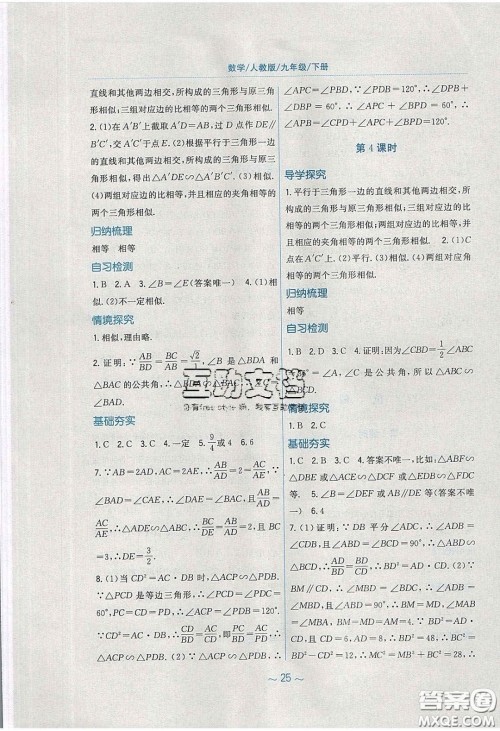 数学/人教版/九年级/下册
直线和其他两边相交,所构成的三角形与原三
角形相似;三组对应边的比相等的两个三角形相似.
2.(1)在A′B′上截取A′D=AB,过D点作DE∥
B′C′,交A′C′于点E.(2)根据平行于三角形一
边的直线和其他两边相交,所构成的三角形与原三
角形相似,得出△A′DE∽△A′B′C′.(3)相
似.(4)两组对应边的比相等,并且相应的夹角相等的
两个三角形相似.
归纳梳理
相等 相等
自习检测
1.B 2.A 3.∠B=∠E(答案唯一) 4.(1)相
似.(2)不一定相似.
情境探究
1.相似,理由略.
2.证明:∵AB/BD=BC/AB=√2/1,∠B是△BDA和
△BAC的公共角,∴△BDA∽
△BAC.
基础夯实
1.C 2.C 3.C 4.一定 5.9/4或4 6.6
7.∵AB=2AD,AC=2AE,∴AB/AD=AC/AE,又∵
∠BAD=∠CAE,∴∠DAE=∠BAC,且AB/AD=
AC/AE,∴△ADE∽△ABC,∴BC/DE=AB/AD=2,且BC
=3,∴DE=3/2.
8.(1)当CD²=AC·DB时,△ACP∽△PDB.
∵△PCD是等边三角形,∴∠PCD=∠PDC=
60°,PC=PD=CD,∴∠PCA=∠PDB=120°.
∵CD²=AC·DB,∴CD/BD=AC/CD,即PC/BD=AC/PD,
∴△ACP∽△PDB.(2)∵△ACP∽△PDB,∴
∠APC=∠PBD,∵∠PDB=120°,∴∠DPB+
∠DBP=60°,∴∠APC+∠DPB=60°,
∴∠APB=∠CPD+∠APC+∠DPB=120°.
第4课时
导学探究
1.平行于三角形一边的直线和其他两边相交,所
构成的三角形与原三角形相似;三组对应边的比
相等的两个三角形相似;两组对应边的比相等,并
且相应的夹角相等的两个三角形相似. 2.(1)C
点在A′C′上.(2)平行.(3)相似.(4)两组对应角
相等的两个三角形相似.
归纳梳理
相等
自习检测
1.B 2.B 3.C 4.证明:因为∠CBD=1/2∠ABC
情境探究
基础夯实
1.C 2.B 3.A 4.答案不唯一,比如:△ABF∽
△DBE或△ACD∽△ABF或△DBE∽△FDC
等. 5.∠B=∠DEF或AB∥DE(答案不唯
一) 6.4
7.(1)证明:∵DB平分∠ADC,∴∠ADB=
∠CDB,且∠ABD=∠BCD=90°,∴△ABD
∽△BCD,∴AD/BD=BD/CD,∴BD²=AD·CD.(2)∵
BM∥CD,∴∠MBD=∠BDC,∴∠ADB=
∠MBD,且∠ABD=90°,∴BM=MD,∠MAB=
∠MBA,∴BM=MD=AM=4.∵BD²=AD·CD,
且CD=6,AD=8,∴BD²=48,∴BC²=
BD²-CD²=12,∴MB²=MC²+BC²=28,∴
互助文档
~25~
答案圈
MXQE.COM